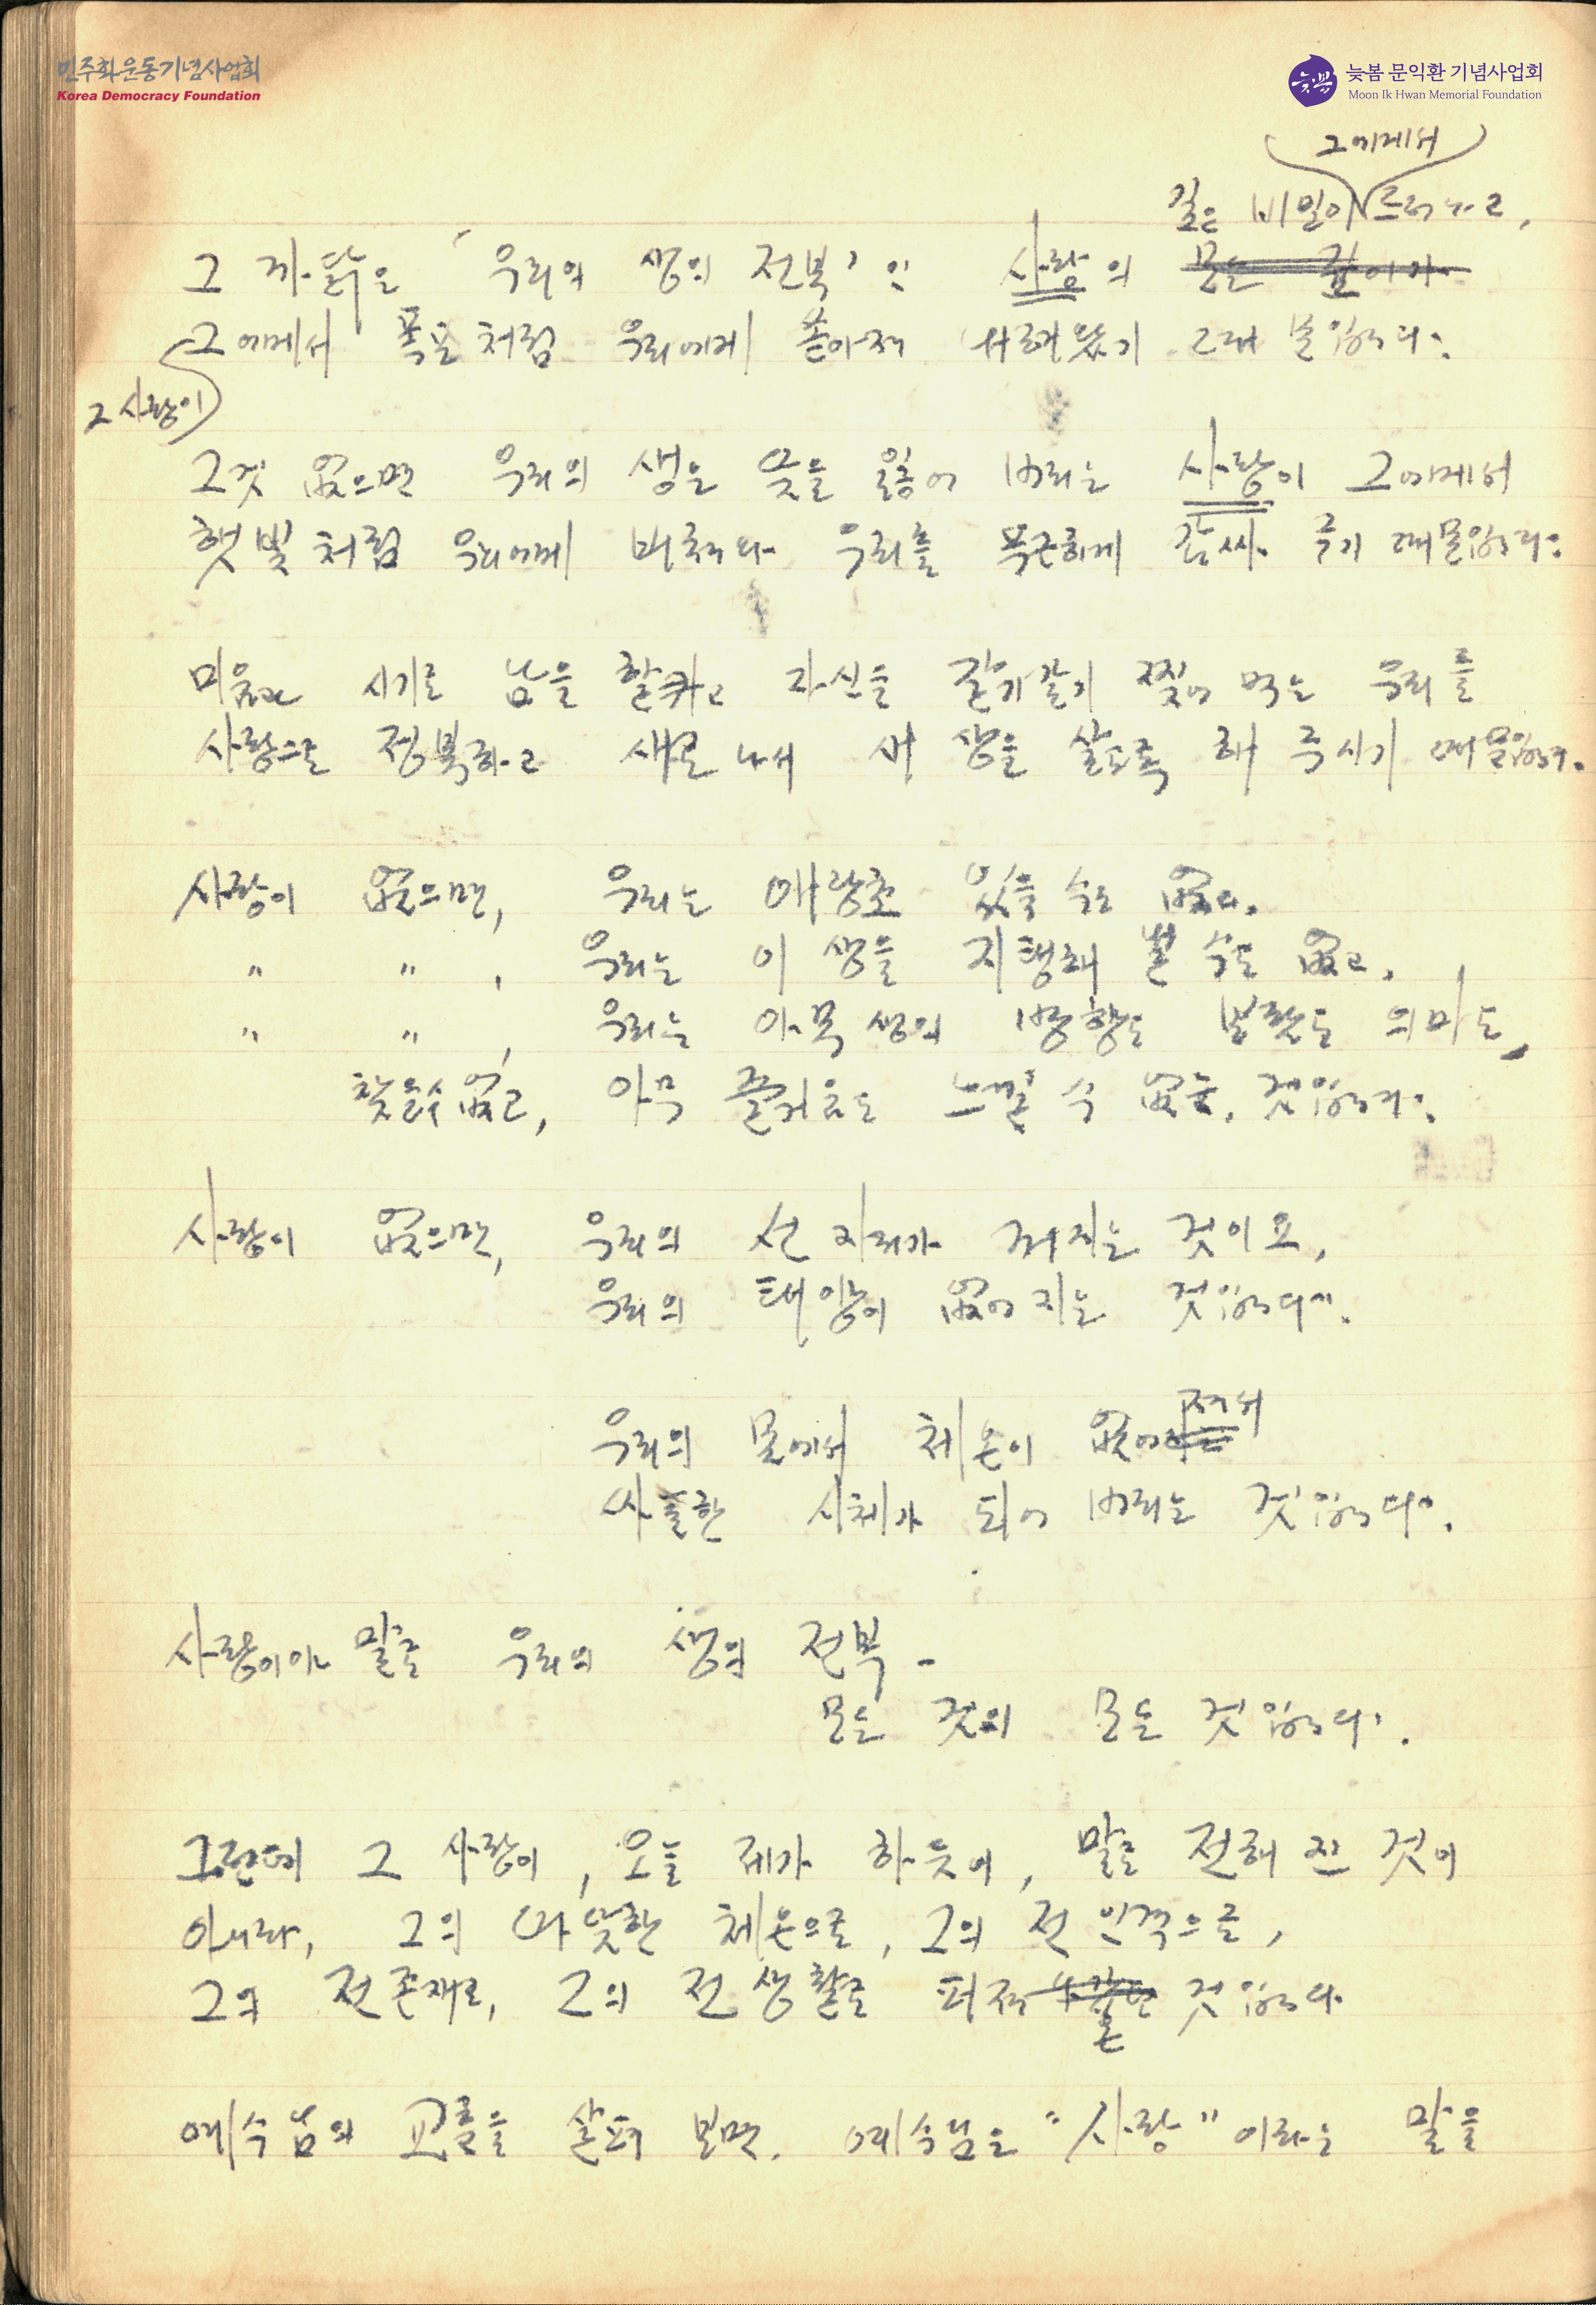 민주화운동기념사업회
Korea Democracy Foundation
늦봄
늦봄 문익환 기념사업회
Moon Ik Hwan Memorial Foundation
그에게서
깊은 비밀이 드러나고,
그 까닭은 '우리의 생의 전부'인 사랑의 모든 깊이가
그에게서 폭포처럼 우리에게 쏟아져 내려왔기 때문입니다.
그 사랑이
그것 없으면 우리의 생은 뜻을 잃어버리는 사랑이 그에게서
햇빛처럼 우리에게 비쳐와 우리를 푹근하게 감싸 주기 때문입니다.
미움과 시기로 남을 할퀴고 자신을 갈기갈기 찢어 먹는 우리를
사랑으로 정복하고 새로 나서 새 생을 살도록 해 주시기 때문입니다.
사랑이 없으면, 우리는 애당초 있을 수도 없고,
" " , 우리는 이 생을 지탱해 낼 수도 없고,
" " , 우리는 아무 생의 방향도 보람도 의미도
찾을 수 없고, 아무 즐거움도 느낄 수 없는 것입니다.
사랑이 없으면, 우리의 선 자리가 꺼지는 것이요,
우리의 태양이 없어지는 것입니다.
져서
우리의 몸에서 체온이 없어
싸늘한 시체가 되어 버리는 것입니다.
사랑이야 말로 우리의 생의 전부 -
모든 것의 모든 것입니다.
그런데 그 사랑이, 오늘 제가 하듯이, 말로 전해진 것이
아니라, 그의 따뜻한 체온으로, 그의 전 인격으로,
그의 전존재로, 그의 전 생활로 퍼져 것입니다
온
예수님의 교훈을 살펴 보면, 예수님은 "사랑"이라는 말을